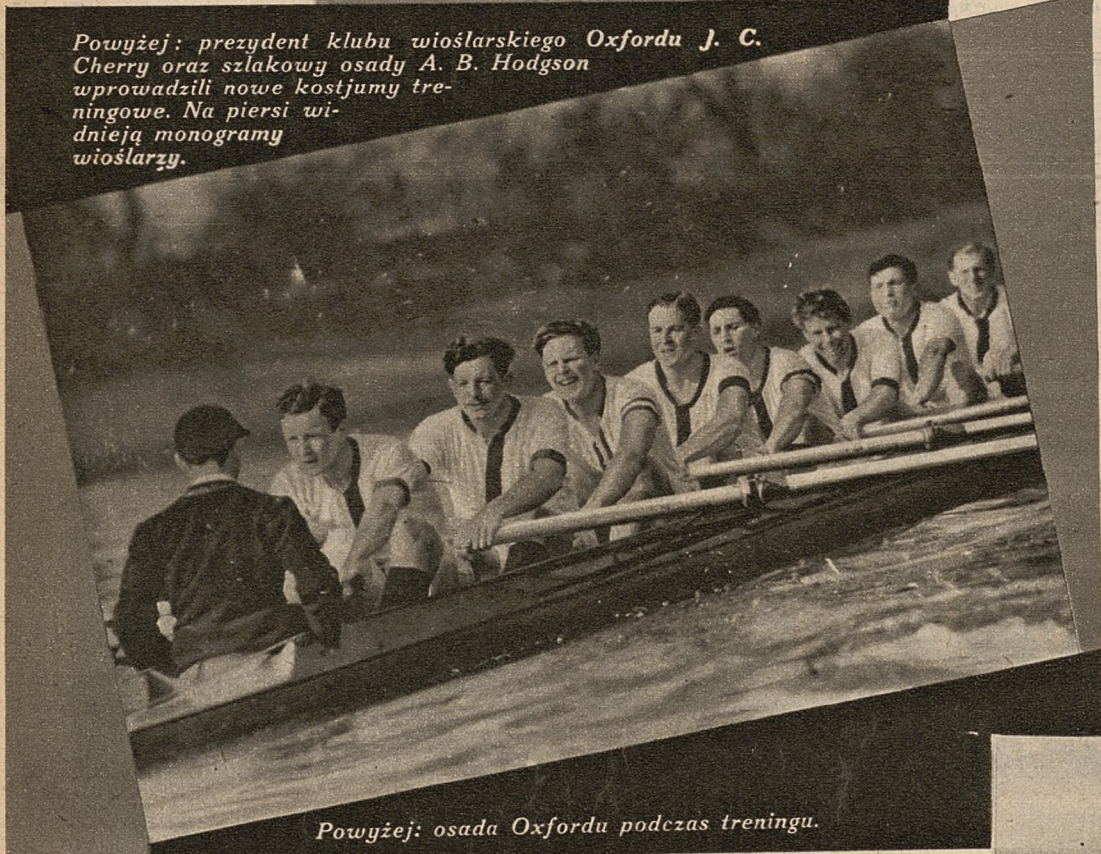 Powyżej: prezydent klubu wioślarskiego Oxfordu J. C.
Cherry oraz szlakowy osady A. B. Hodgson
wprowadzili nowe kostjumy tre-
ningowe. Na piersi wi-
dnieją monogramy
wioślarzy.
Powyżej: osada Oxfordu podczas treningu.